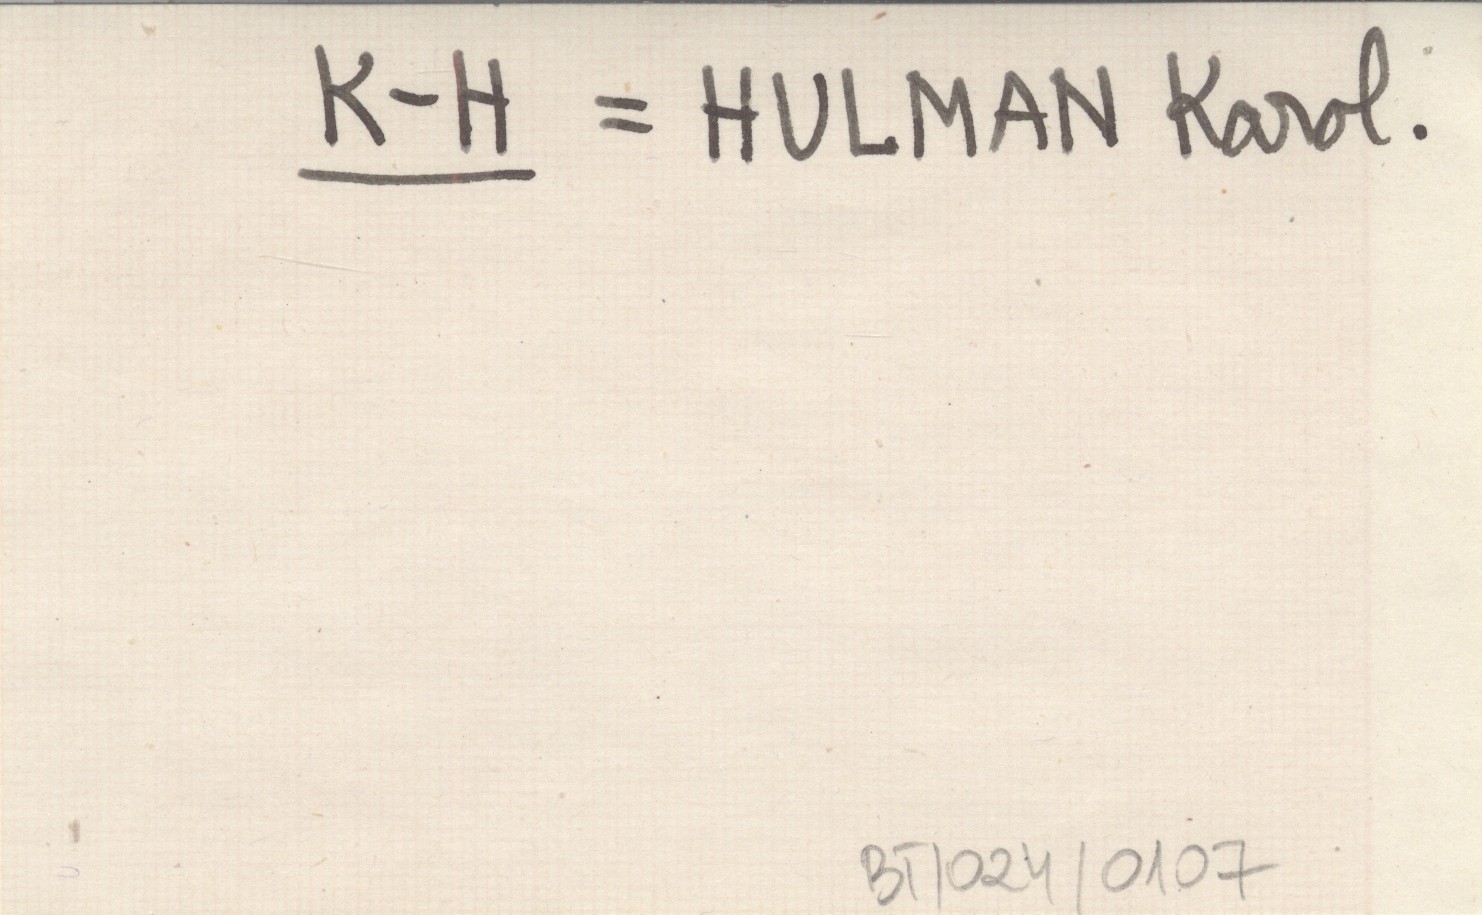 K-H = HULMAN Karol.
BT/024/0107